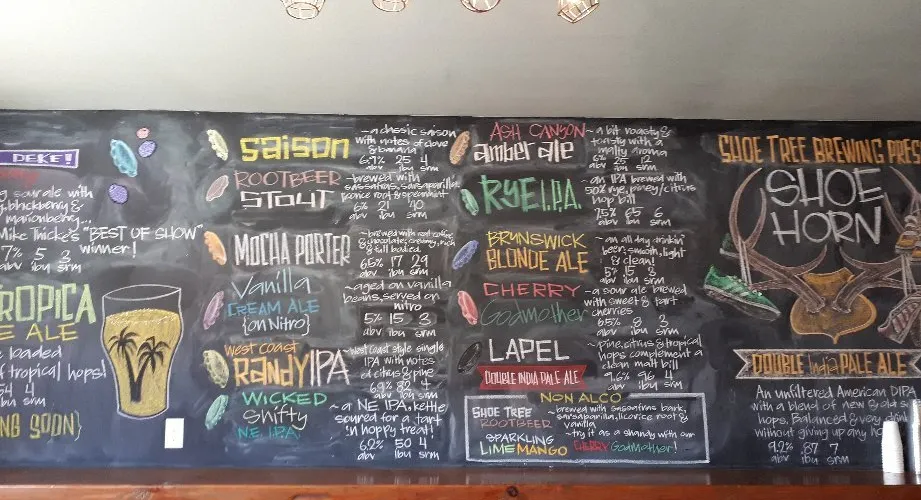 DEKE!
sour ale with
blackberry &
marionberry...
Mike Tricke's "BEST OF SHOW"
7% 5 3 winner!
abv ibu srm
TROPICA
ALE
loaded
of tropical hops!
54 4
ibu srm
NG SOON}
Saison
~a classic saison
with notes of clove
& banana
6.7% 25 4
abv ibu srm
ROOTBEER
STOUT
~brewed with
sassafras, sarsaparilla,
licorice root & spearmint
6% 21 40
abv ibu srm
MOCHA PORTER
~brewed with real coffee
& chocolate; creamy, rich
& full bodied
6.5% 17 29
abv ibu srm
Vanilla
CREAM ALE
{on Nitro}
~aged on vanilla
beans, served on
nitro
5% 15 3
abv ibu srm
WEST COAST
RANDY IPA
~West Coast style single
IPA with notes
of citrus & pine
6.9% 82 4
abv ibu srm
WICKED
Shifty
NE IPA
~a NE IPA, kettle
soured for a tart
n hoppy treat!
6.2% 50 4
abv ibu srm
ASH CANYON
amber ale
~a bit roasty &
toasty with a
malty aroma
6% 25 12
abv ibu srm
RYE I.P.A.
~an IPA brewed with
50% rye, piney/citrus
hop bill
7.5% 65 6
abv ibu srm
BRUNSWICK
BLONDE ALE
~an all day drinkin'
beer; smooth, light
& clean!
5% 15 3
abv ibu srm
CHERRY
Godmother
~a sour ale brewed
with sweet & tart
cherries
6.5% 8 3
abv ibu srm
LAPEL
DOUBLE INDIA PALE ALE
~pine, citrus & tropical
hops complement a
clean malt bill
7.6% 96 4
abv ibu srm
NON ALCO
SHOE TREE
ROOTBEER
~brewed with sassafras bark,
sarsaparilla, licorice root &
vanilla
SPARKLING
LIME MANGO
~try it as a shandy with our
CHERRY Godmother!
SHOE TREE BREWING PRES
SHOE
HORN
DOUBLE India PALE ALE
An unfiltered American DIPA
with a blend of new & old s
hops. Balanced & very drink
without giving up any ho
9.2% 87 7
abv ibu srm